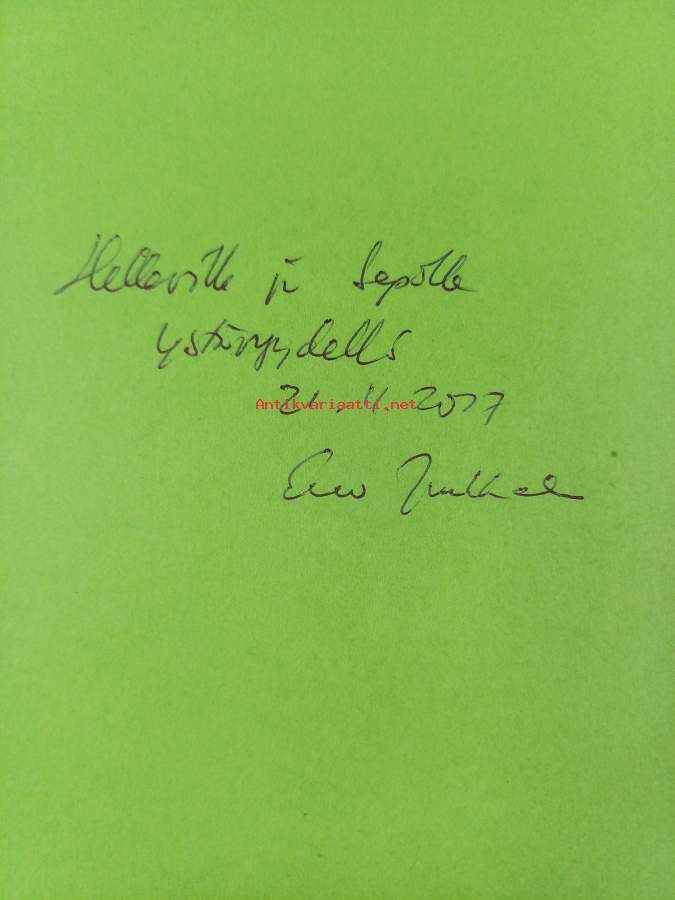 Helleville ja Sepolle
ystävyydellä
21.11.2017
Antikvariaatti.net